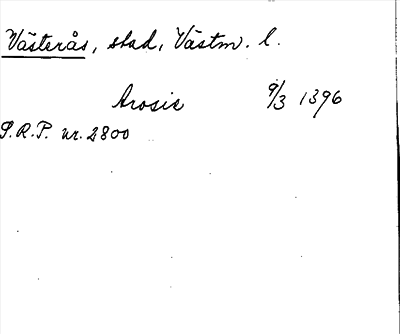 Västerås, stad, Västm. l.
Arosie 9/3 1396
S.R.P. nr. 2800